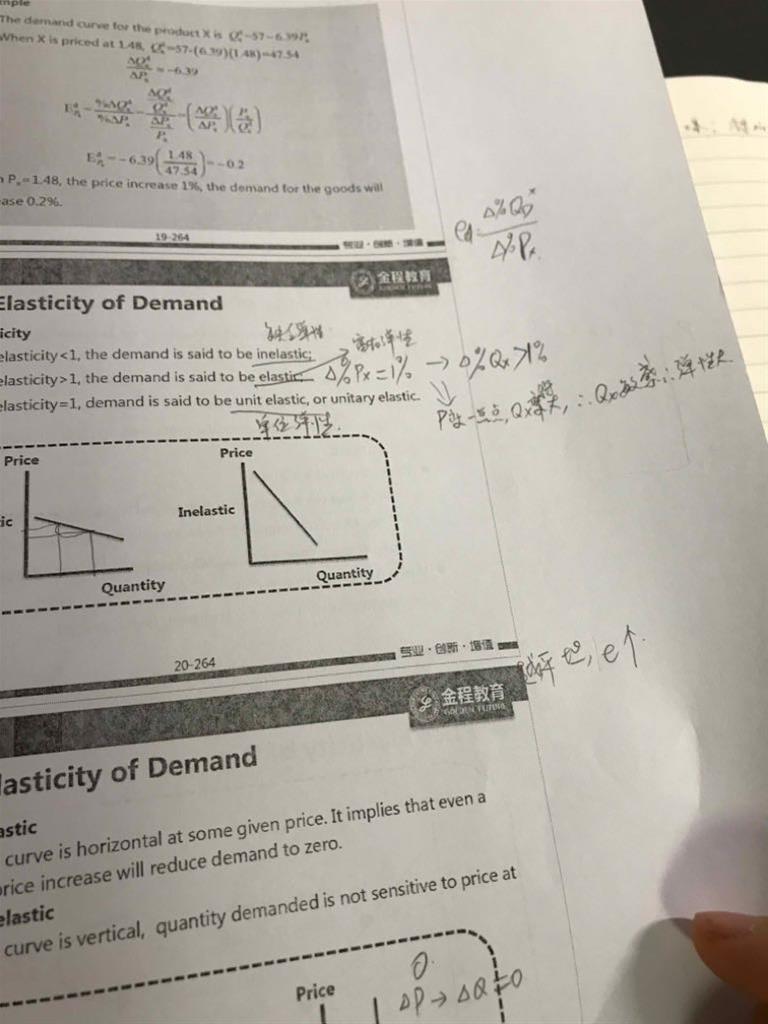 mple
The demand curve for the product X is Qᵈₓ=57−6.39Pₓ
When X is priced at 1.48, Qᵈₓ=57-(6.39)(1.48)=47.54
ΔQᵈₓ/ΔPₓ = −6.39
Eᵈₚₓ = %ΔQᵈₓ/%ΔPₓ = (ΔQᵈₓ/Qᵈₓ)/(ΔPₓ/Pₓ) = (ΔQᵈₓ/ΔPₓ)(Pₓ/Qᵈₓ)
Eᵈₚₓ = −6.39(1.48/47.54) = −0.2
Pₓ=1.48, the price increase 1%, the demand for the goods will
ase 0.2%.
ed = Δ%Q_Dˣ/Δ%Pₓ
19-264
专业·创新·增值
金程教育
GOLDEN FUTURE
Elasticity of Demand
icity
缺乏弹性
富有弹性
elasticity<1, the demand is said to be inelastic;
elasticity>1, the demand is said to be elastic; Δ%Pₓ=1% → Δ%Qₓ>1%
elasticity=1, demand is said to be unit elastic, or unitary elastic.
一点点, Qₓ ∴Qₓ敏感∴弹性大
单位弹性.
Price
Price
ic
Inelastic
Quantity
Quantity
20-264
专业·创新·增值
越平坦, e↑.
金程教育
GOLDEN FUTURE
lasticity of Demand
astic
curve is horizontal at some given price. It implies that even a
rice increase will reduce demand to zero.
elastic
curve is vertical, quantity demanded is not sensitive to price at
Price
0.
ΔP→ΔQ